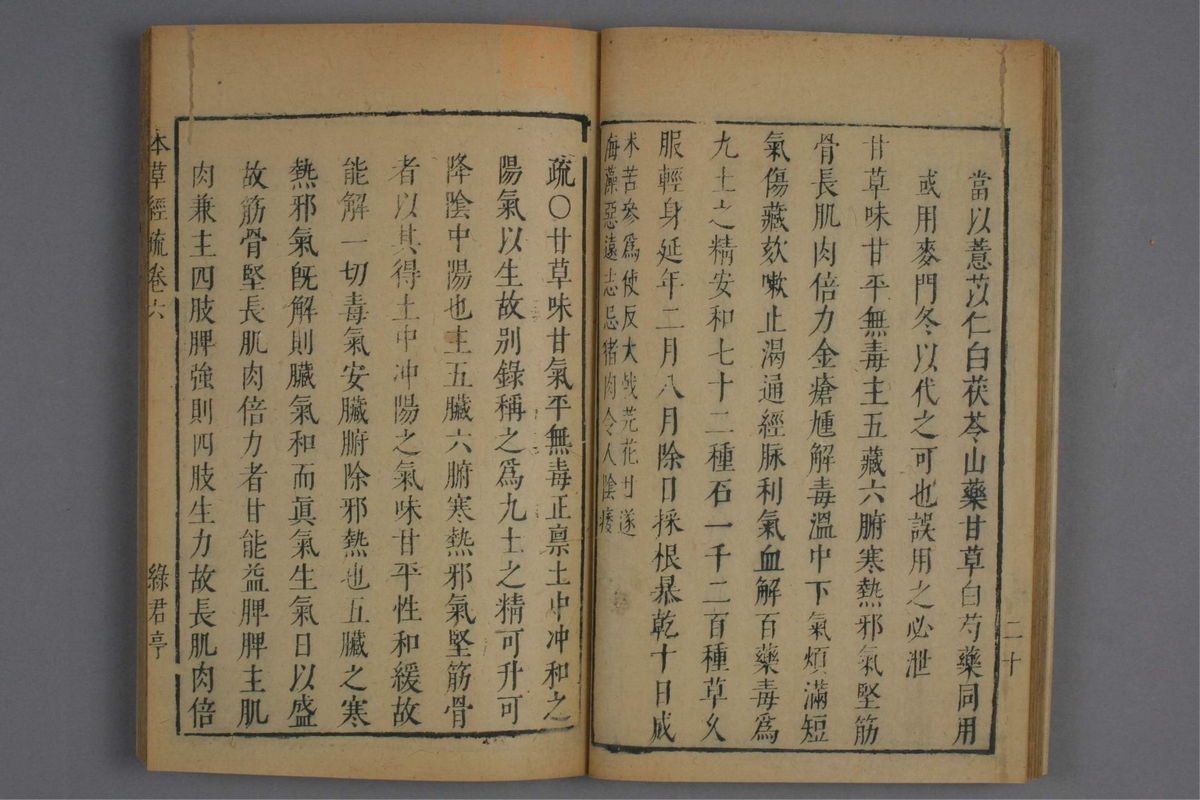 當以薏苡仁白茯苓山藥甘草白芍藥同用
或用麥門冬以代之可也誤用之必泄
甘草味甘平無毒主五藏六腑寒熱邪氣堅筋
骨長肌肉倍力金瘡尰解毒溫中下氣煩滿短
氣傷藏欬嗽止渴通經脉利氣血解百藥毒爲
九土之精安和七十二種石一千二百種草久
服輕身延年二月八月除日採根暴乾十日成
术苦參爲使反大戟芫花甘遂
海藻惡遠志忌猪肉令人陰痿
二十
疏○甘草味甘氣平無毒正禀土中冲和之
陽氣以生故别錄稱之爲九土之精可升可
降陰中陽也主五臟六腑寒熱邪氣堅筋骨
者以其得土中冲陽之氣味甘平性和緩故
能解一切毒氣安臟腑除邪熱也五臟之寒
熱邪氣旣解則臟氣和而眞氣生氣日以盛
故筋骨堅長肌肉倍力者甘能益脾脾主肌
肉兼主四肢脾強則四肢生力故長肌肉倍
本草經疏卷六
綠君亭